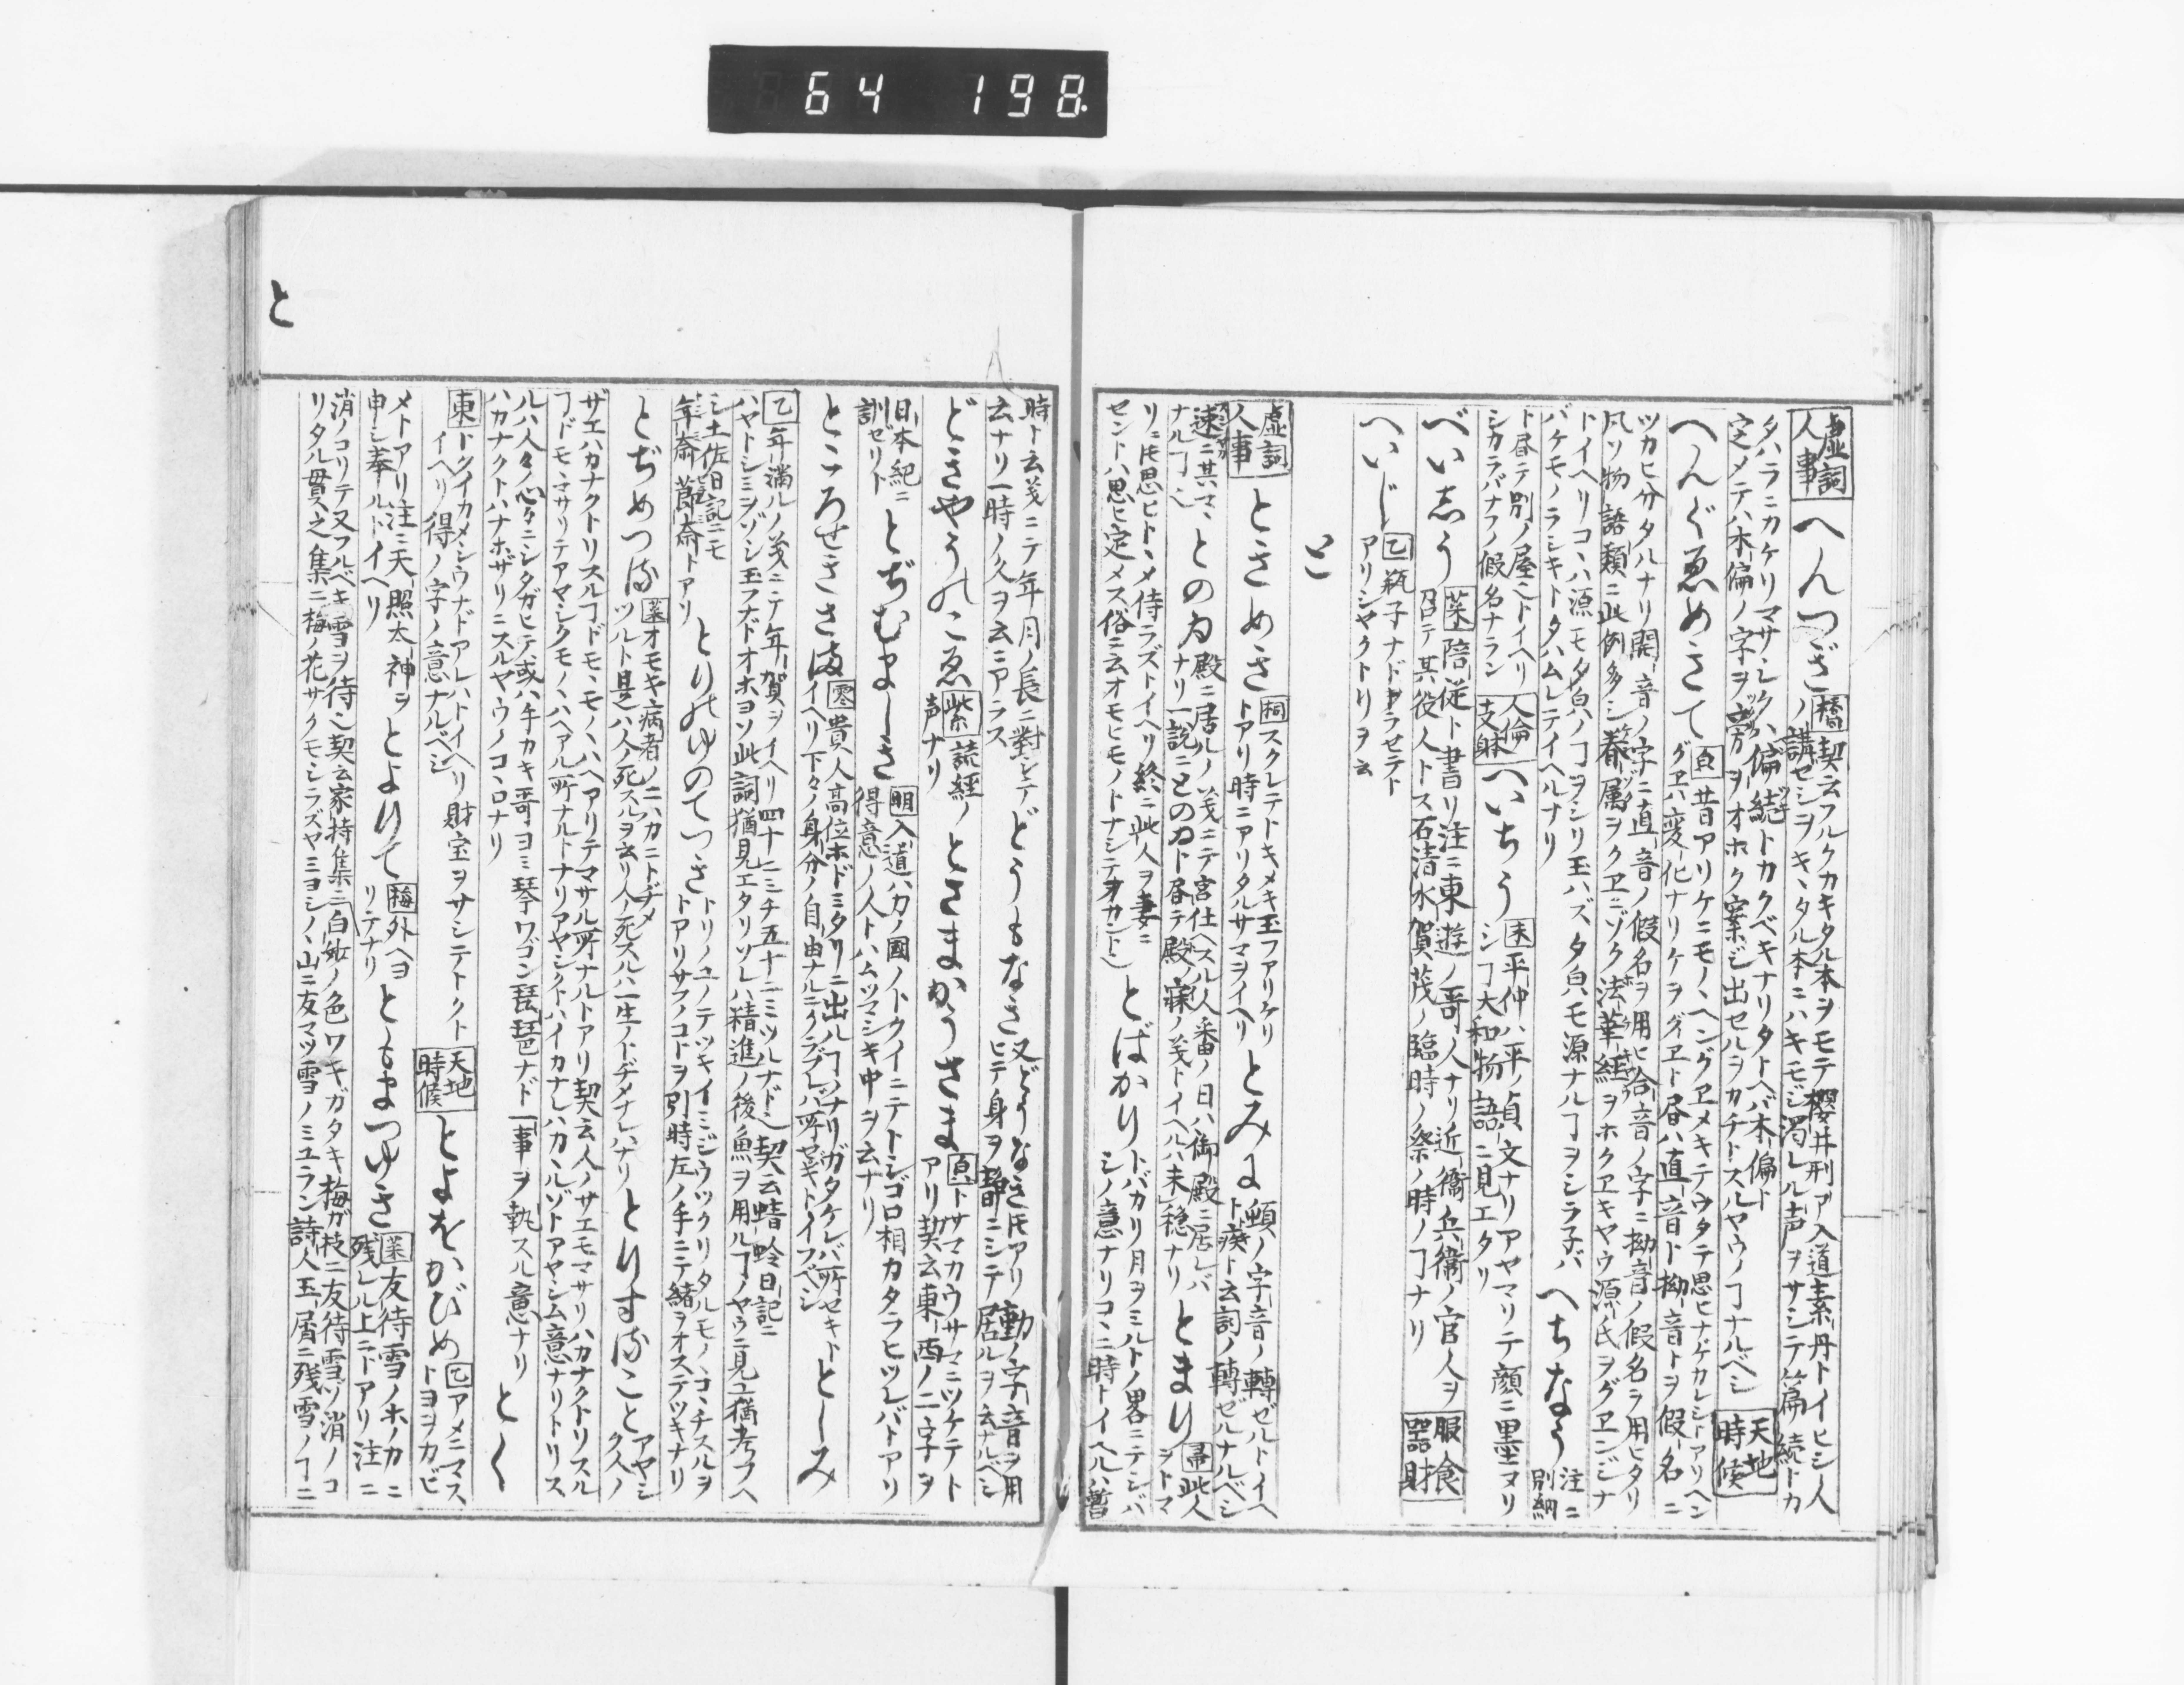 64 198.
虚詞人事 へんつぎ 橋 契云フルクカキタル本ヲモテ櫻井刑ア入道素丹トイヒシ人
ノ講セシヲキヽタル本ニハキモジ濁レル声ヲサシテ篇続トカ
タハラニカケリマサシクハ偏続トカクベキナリタトヘバ木偏ト
定メテハ木偏ノ字ヲ方ヲオホク案ジ出セルヲカチトスルヤウノヿナルベシ 天地時候
へんぐゑめきて 頁 昔アリケニモノヽヘングヱメキテウタテ思ヒナゲカレシトアリヘン
グヱハ変化ナリケヲグヱト昼ハ直音ト拗音トヲ假名ニ
ツカヒ分タルナリ開音ノ字ニ直音ノ假名ヲ用ヒ合音ノ字ニ拗音ノ假名ヲ用ヒタリ
凡ソ物語類ニ此例多シ眷属ヲクヱンゾク法華経ヲホクヱキヤウ源氏ヲグヱンジナ
トイヘリコヽハ源モ夕皃ノヿヲシリ玉ハズ夕皃モ源ナルヿヲシラ子バ
バケモノラシキトタハムレテイヘルナリ へちなう 注ニ別納
ト昼テ別ノ屋ヽトイヘリ
シカラバナフノ假名ナラン 人倫支躰 へいちう 末 平仲ハ平貞文ナリアヤマリテ顔ニ墨ヌリ
シヿ大和物語ニ見エタリ
べいじう 菜 陪従ト書リ注ニ東遊ノ哥人ナリ近衛兵衛ノ官人ヲ
召テ其役人トス石清水賀茂ノ臨時ノ祭ノ時ノヿナリ 服食器財
へいじ 乙 瓶子ナドトラセテト
アリシヤクトリヲ云
と
虚詞人事 ときめき 桐 スクレテトキメキ玉フアリケリ
トアリ時ニアリタルサマヲイヘリ とみに 頓ノ字音ノ轉ゼルトイヘ
ト疾ト云詞ノ轉ゼルナルベシ
速ニ其マヽ
ナルヿヽ とのゐ 殿ニ居ルノ義ニテ宮仕ヘスル人番ノ日ハ御殿ニ居レバ
ナリ一説ニとのゐト昼テ殿寐ノ義トイヘルハ未穏ナリ とまり 帚 此人
ヲトマ
リニ𪜈思ヒトヽメ侍ラズトイヘリ終ニ此人ヲ妻ニ
セントハ思ヒ定メス俗ニ云オモヒモノトナシテオカント とばかり トバカリ月ヲミルトノ畧ニテシバ
シノ意ナリコヽニ時トイヘルハ暫
時ト云義ニテ年月ノ長ニ對シテ
云ナリ一時ノ久ヲ云ニアラス どうもなき 又どうなき𪜈アリ動ノ字音ヲ用
ヒテ身ヲ静ニシテ居ルヲ云ナルベシ
どきやうのこゑ 紫 読経ノ
声ナリ とさまかうさま 頁 トサマカウサマニツケテト
アリ契云東西ノ二字ヲ
日本紀ニ
訓ゼリト とぢむましき 明 入道ハカノ國ノトクイニテトシゴロ相カタラヒツレバトアリ
得意ノ人トハムツマシキ中ヲ云ナリ
ところせきさま 澪 貴人高位ホドミタリニ出ルヿハナリガタケレバ所セキト
イヘリ下々ノ身分ノ自由ナルニクラブレバ所セキトイフベシ としみ
乙 年満ルノ義ニテ年賀ヲイヘリ四十ニミチ五十ニミツルナドヽ契云蜻蛉日記ニ
ハヤトシミヲゾシ玉フナドオホヨソ此詞猶見エタリソレハ精進ノ後魚ヲ用ルヿノヤウニ見ユ猶考フヘ
シ土佐日記ニモ
年斎節斎トアリ とりのゆのてつき トリノユノテツキイミジウツクリタルモノヽコヽチスルヲ
トアリサフノコトヲ引時左ノ手ニテ緒ヲオステツキナリ
とぢめつる 葉 オモキ病者ノニハカニトヂメ
ツルト是ハ人ノ死スルヲ云リ人ノ死スルハ一生ノトヂメナレハナリ とりすること アヤシ
クスノ
ザエハカナクトリスルヿドモヽモノヽハヘアリテマサル所ナルトアリ契云人ノサエモマサリハカナクトリスル
ヿドモヽマサリテアマシクモノヽハヘアル所ナルトナリアヤシクトハイカナレハカヽルゾトアヤシム意ナリトリス
ルハ人々ノ心々ニシタガヒテ或ハ手カキ哥ヨミ琴ワゴン琵琶ナド一事ヲ執スル意ナリ
ハカナクトハナホザリニスルヤウノコヽロナリ とく
東 トクイカメシウナドアレハトイヘリ財宝ヲサシテトクト
イヘリ得ノ字ノ意ナルベシ 天地時候 とよをかびめ 乙 アメニマス
トヨヲカビ
メトアリ注ニ天照太神ヲ
申シ奉ルトイヘリ とよりて 梅 外ヘヨ
リテナリ ともまつゆき 葉 友待雪ノホノカニ
残レル上ニトアリ注ニ
消ノコリテ又フルベキ雪ヲ待ヽ契云家持集ニ白妙ノ色ワキガタキ梅ガ枝ニ友待雪ゾ消ノコ
リタル貫之集ニ梅ノ花サクモシラズヤミヨシノヽ山ニ友マツ雪ノミユラン詩人玉屑ニ残雪ノヿニ
と